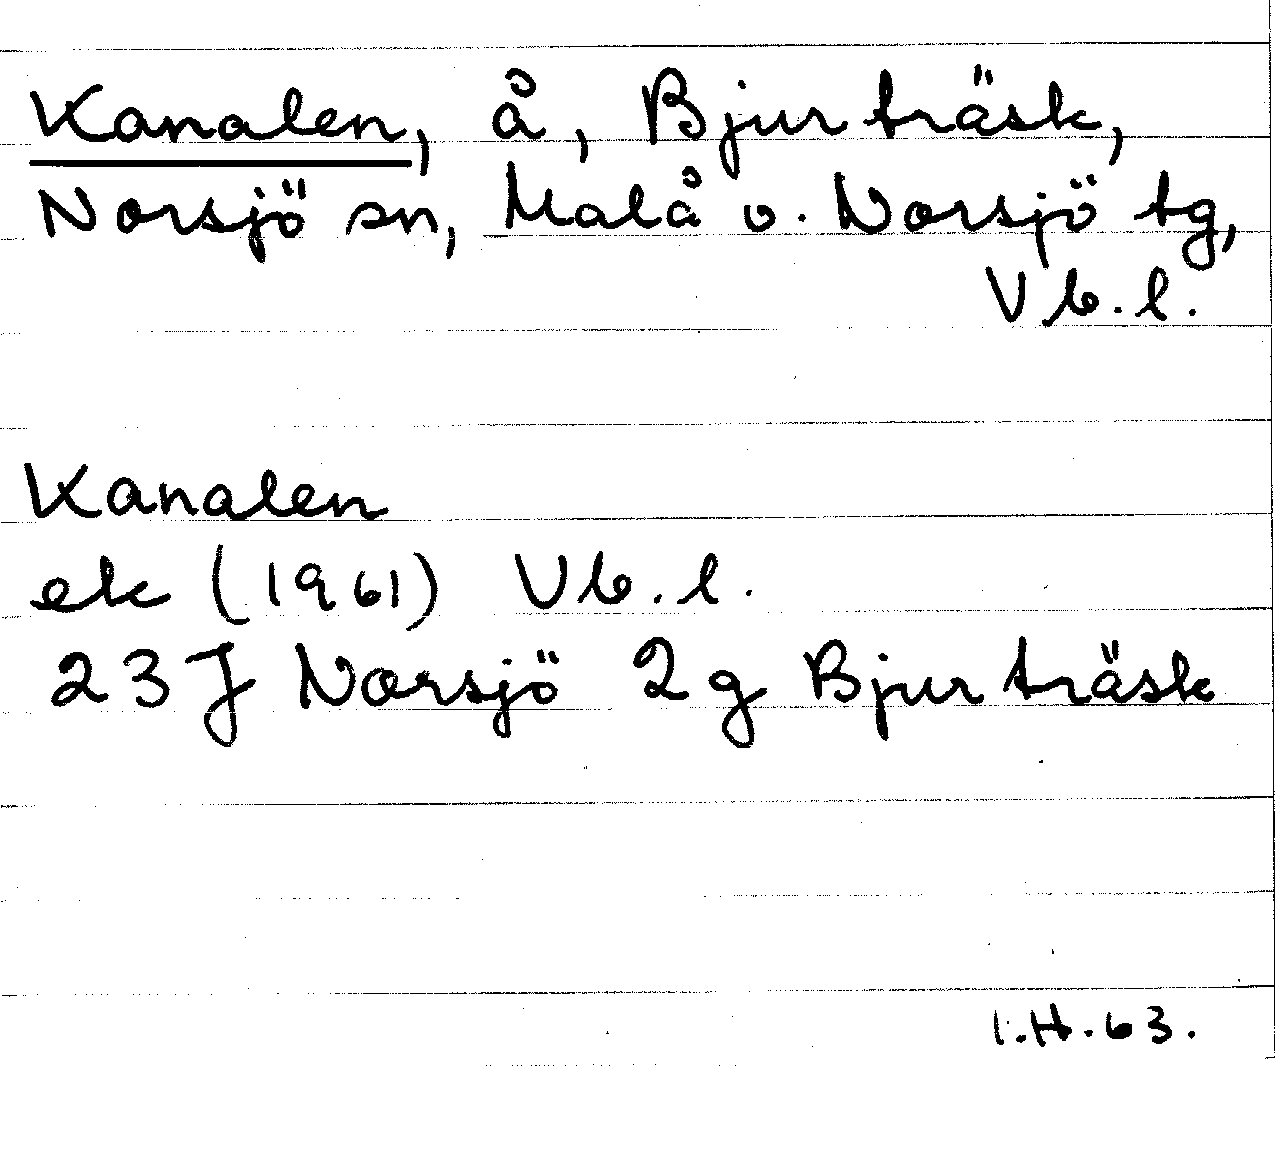 Kanalen, å, Bjurträsk,
Norsjö sn, Malå o. Norsjö tg,
Vb.l.
Kanalen
ek (1961) Vb.l.
23 J Norsjö 2g Bjurträsk
I.H.63.